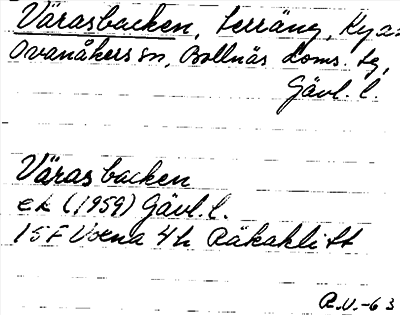 Väräsbacken, terräng, Kyas
Ovanåkers sn, Bollnäs doms. tg,
Gävl. l.
Väräsbacken
ek (1959) Gävl. l.
15F Voxna 4h Räkaklitt
R.V.-63